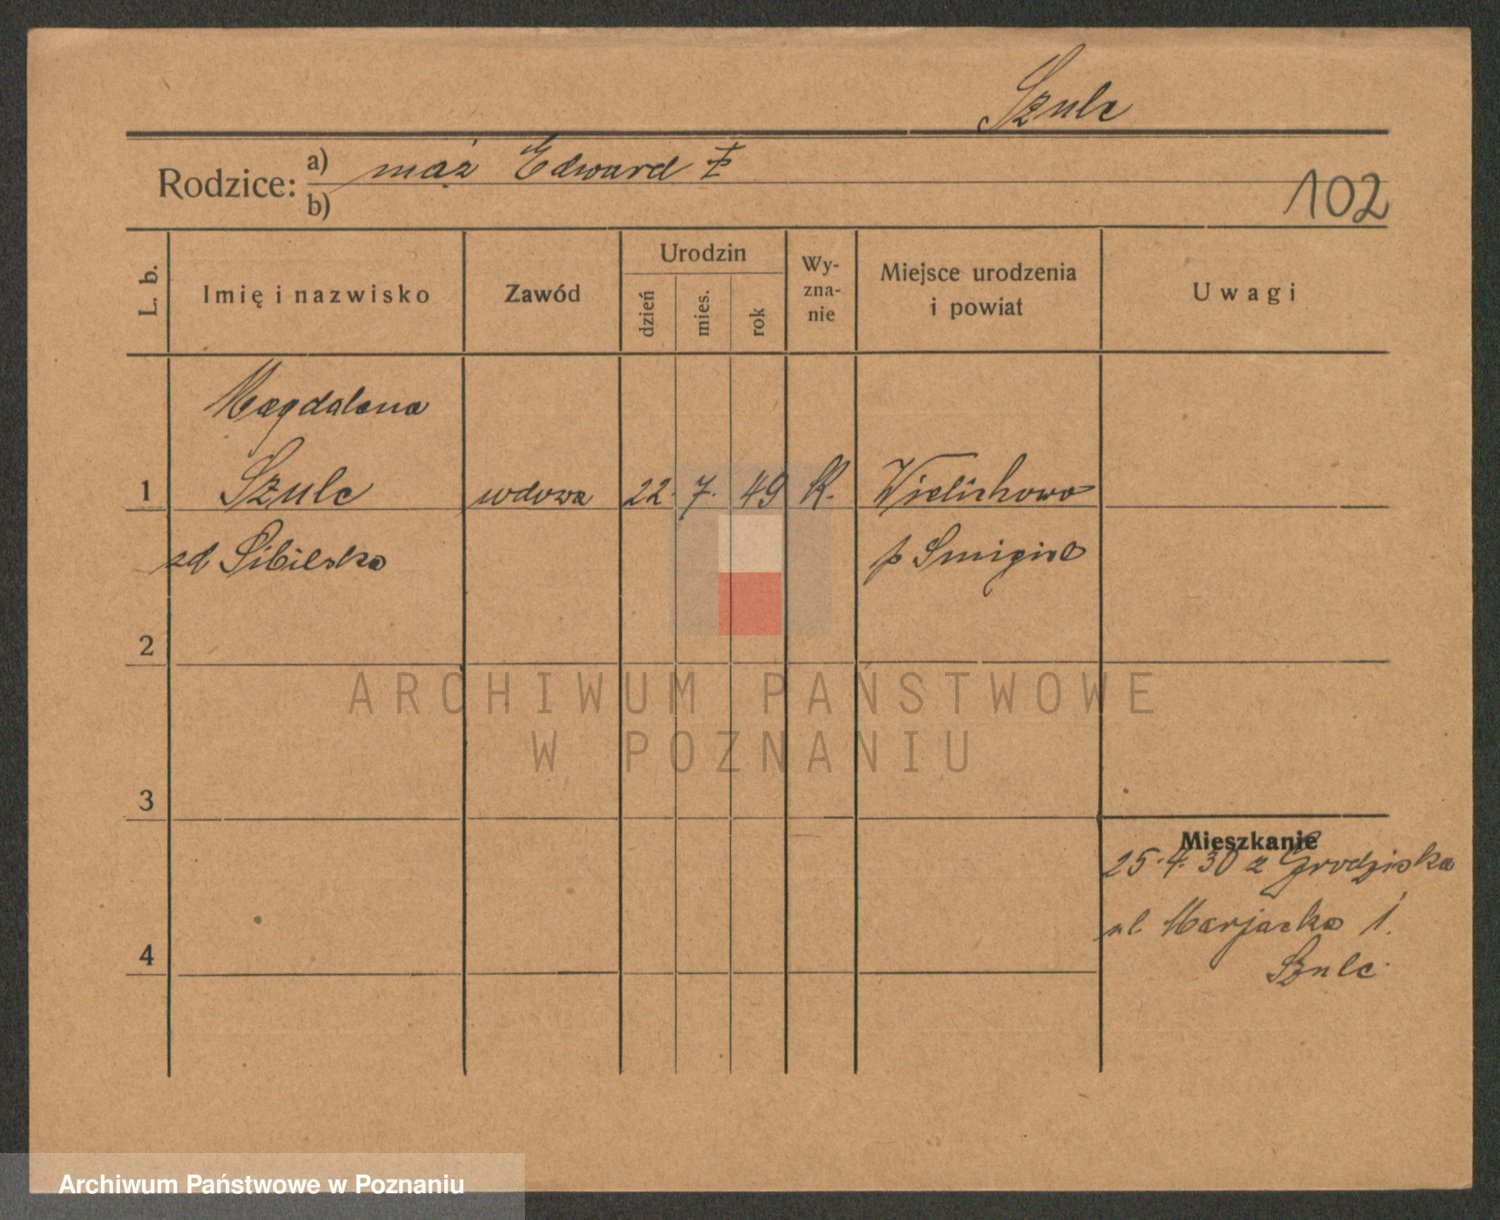 Szulc
Rodzice: a) mąż Edward ‡
b)
102
L. b.
Imię i nazwisko
Zawód
Urodzin
dzień
mies.
rok
Wy-
zna-
nie
Miejsce urodzenia
i powiat
Uwagi
Magdalena
1 Szulc wdowa 22. 7. 49 K. Wielichowo
zd Sibilska p Smigiel
2
3
4
Mieszkanie
25.4.30 z Grodziska
ul. Marjacka 1.
Szulc
ARCHIWUM PAŃSTWOWE
W POZNANIU
Archiwum Państwowe w Poznaniu